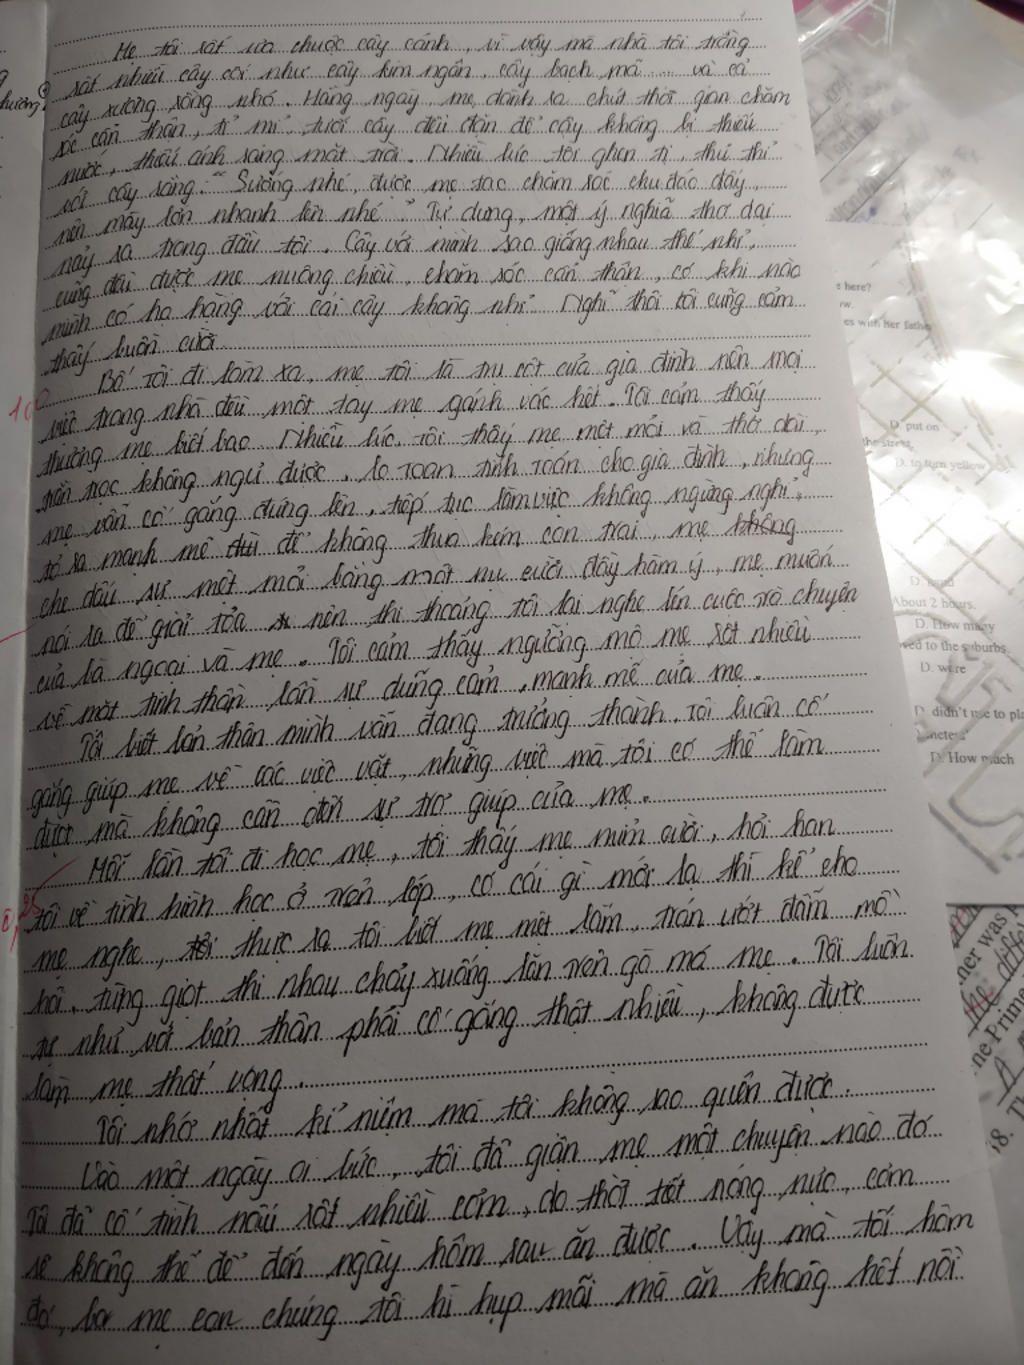 Mẹ tôi rất ưa chuộc cây cảnh, vì vậy mà nhà tôi trồng
rất nhiều cây cối như cây kim ngân, cây bạch mã .... và cả
cây xương rồng nhỏ. Hàng ngày, mẹ dành ra chút thời gian chăm
sóc cẩn thận, tỉ mỉ, tưới cây đều đặn để cây không bị thiếu
nước, thiếu ánh sáng mặt trời. Nhiều lúc tôi ghen tị, thủ thỉ
với cây rằng: "Sướng nhé, được mẹ tao chăm sóc chu đáo đấy,
nên mày lớn nhanh lên nhé". Tự dưng, một ý nghĩ thơ dại
nảy ra trong đầu tôi. Cây với mình sao giống nhau thế nhỉ,
cũng đều được mẹ nuông chiều, chăm sóc cẩn thận, có khi nào
mình có họ hàng với cái cây không nhỉ. Nghĩ thôi tôi cũng cảm
thấy buồn cười.
Bố tôi đi làm xa, mẹ tôi là trụ cột của gia đình nên mọi
việc trong nhà đều một tay mẹ gánh vác hết. Tôi cảm thấy
thương mẹ biết bao. Nhiều lúc, tôi thấy mẹ mệt mỏi và thở dài,
trằn trọc không ngủ được, lo toan tính toán cho gia đình, nhưng
mẹ vẫn cố gắng đứng lên, tiếp tục làm việc không ngừng nghỉ,
tỏ ra mạnh mẽ để không thua kém con trai, mẹ không
che dấu sự mệt mỏi bằng một nụ cười đầy hàm ý, mẹ muốn
nói ra để giải tỏa nên thi thoảng tôi lại nghe lén cuộc trò chuyện
của bà ngoại và mẹ. Tôi cảm thấy ngưỡng mộ mẹ rất nhiều
về mặt tinh thần lẫn sự dũng cảm, mạnh mẽ của mẹ.
Tôi biết bản thân mình vẫn đang trưởng thành, tôi luôn cố
gắng giúp mẹ về các việc vặt, những việc mà tôi có thể làm
được mà không cần đến sự trợ giúp của mẹ.
Mỗi lần tôi đi học mẹ, tôi thấy mẹ mỉm cười, hỏi han
tôi về tình hình học ở trên lớp, có cái gì mới lạ thì kể cho
mẹ nghe, thực ra tôi biết mẹ mệt lắm, trán ướt đẫm mồ
hôi, từng giọt thi nhau chảy xuống lăn trên gò má mẹ. Tôi luôn
tự nhủ với bản thân phải cố gắng thật nhiều, không được
làm mẹ thất vọng.
Tôi nhớ nhất kỉ niệm mà tôi không sao quên được.
Vào một ngày oi bức, tôi đã giận mẹ một chuyện nào đó
Tôi đã cố tình nấu rất nhiều cơm, do thời tiết nóng nực, cơm
sẽ không thể để đến ngày hôm sau ăn được. Vậy mà tối hôm
đó, ba mẹ con chúng tôi hì hụp mãi mà ăn không hết nồi
here?
es with her father
D. put on
the street.
D. to turn yellow
D. used
About 2 hours.
D. How many
ved to the suburbs.
D. were
D. didn't use to pla
D. How much